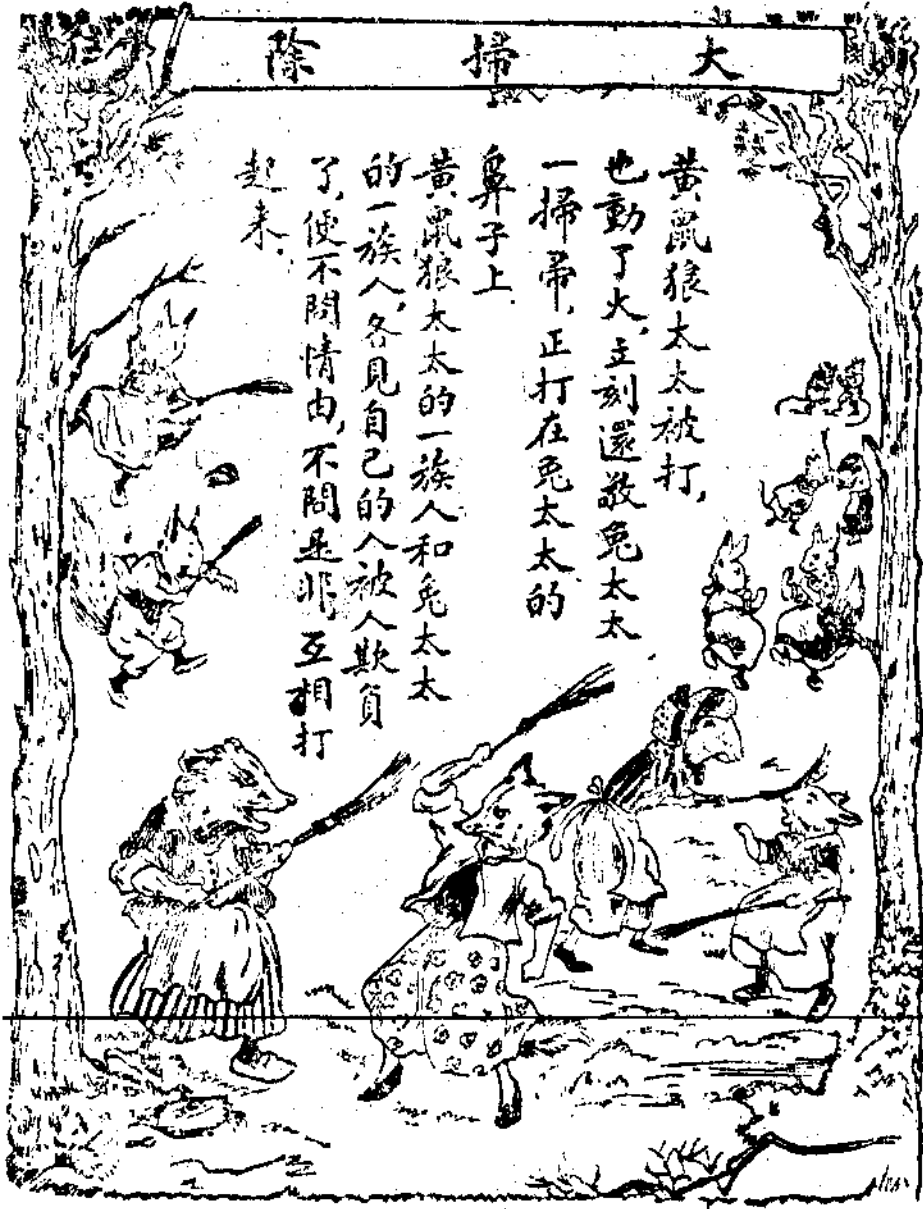 大掃除
黃鼠狼太太被打,
也動了火,立刻還敬兔太太
一掃帚,正打在兔太太的
鼻子上.
黃鼠狼太太的一族人和兔太太
的一族人,各見自己的人被人欺負
了,便不問情由,不問是非,互相打
起来.